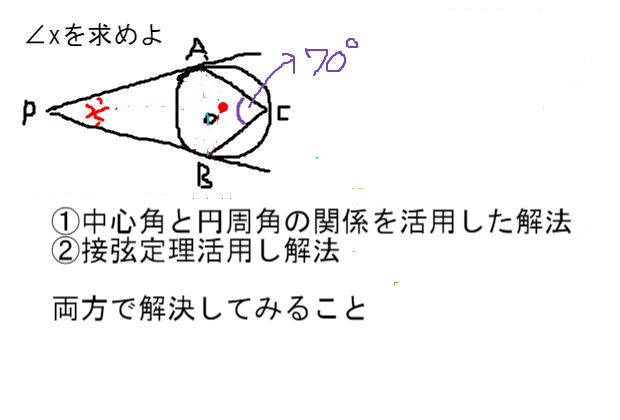 ∠xを求めよ
A
70°
P
x
O
C
B
①中心角と円周角の関係を活用した解法
②接弦定理活用し解法
両方で解決してみること